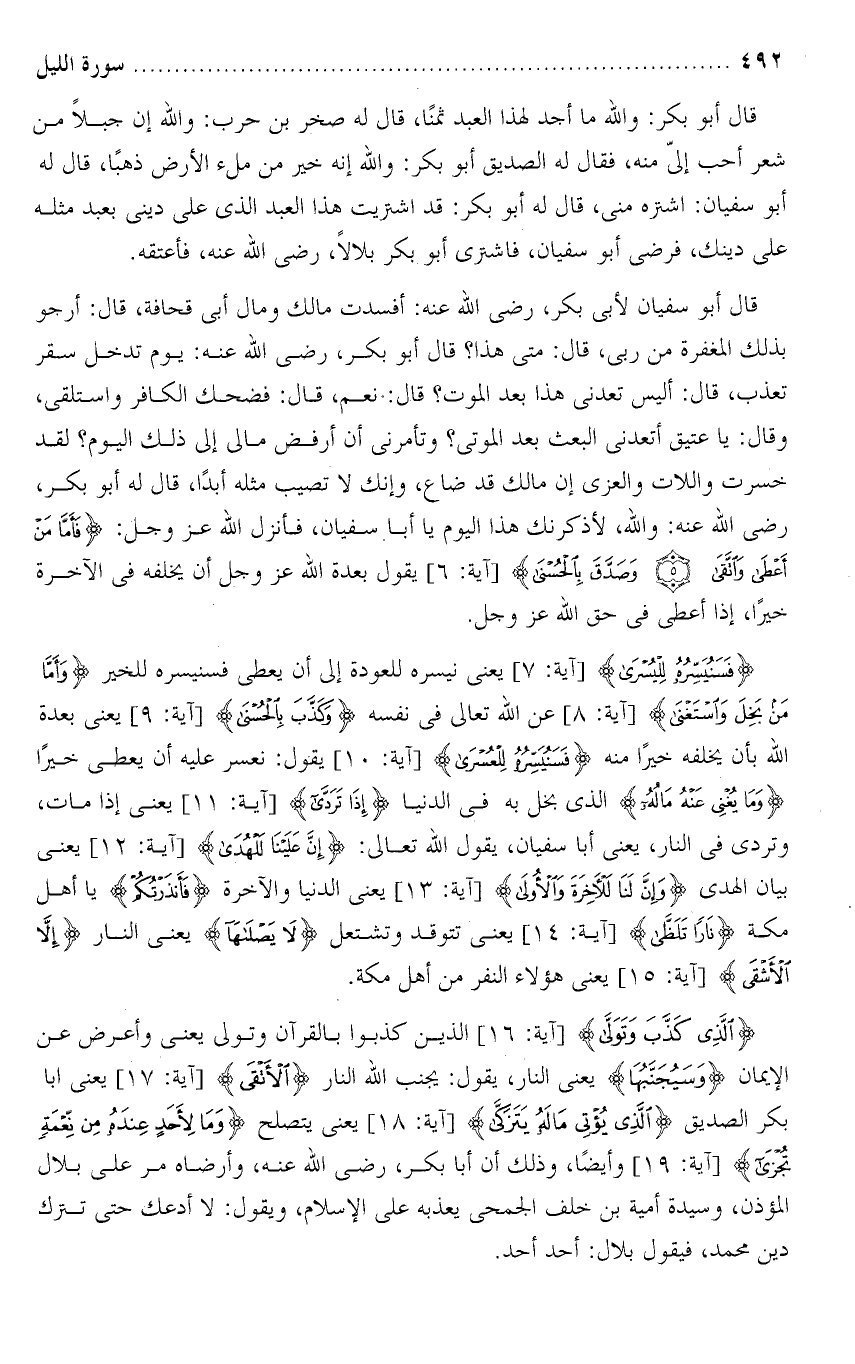 ٤٩٢ ........................................................................ سورة الليل
قال أبو بكر: والله ما أجد لهذا العبد ثمنًا، قال له صخر بن حرب: والله إن جبـلاً مـن
شعر أحب إلىّ منه، فقال له الصديق أبو بكر: والله إنه خير من ملء الأرض ذهبًا، قال له
أبو سفيان: اشتره منى، قال له أبو بكر: قد اشتريت هذا العبد الذى على دينى بعبد مثلـه
على دينك، فرضى أبو سفيان، فاشترى أبو بكر بلالاً، رضى الله عنه، فأعتقه.
قال أبو سفيان لأبى بكر، رضى الله عنه: أفسدت مالك ومال أبى قحافة، قال: أرجو
بذلك المغفرة من ربى، قال: متى هذا؟ قال أبو بكـر، رضـى الله عنـه: يـوم تدخـل سـقر
تعذب، قال: أليس تعدنى هذا بعد الموت؟ قال: نعـم، قـال: فضحـك الكـافر واسـتلقى،
وقال: يا عتيق أتعدنى البعث بعد الموتى؟ وتأمرنى أن أرفـض مـالى إلى ذلـك اليـوم؟ لقـد
خسرت واللات والعزى إن مالك قد ضاع، وإنك لا تصيب مثله أبدًا، قال له أبو بكـر،
رضى الله عنه: والله، لأذكرنك هذا اليوم يا أبـا سـفيان، فـأنزل الله عـز وجـل: ﴿فَأَمَّا مَنْ
أَعْطَىٰ وَٱتَّقَىٰ ٥ وَصَدَّقَ بِٱلْحُسْنَىٰ﴾ [آية: ٦] يقول بعدة الله عز وجل أن يخلفه فى الآخـرة
خيرًا، إذا أعطى فى حق الله عز وجل.
﴿فَسَنُيَسِّرُهُۥ لِلْيُسْرَىٰ﴾ [آية: ٧] يعنى نيسره للعودة إلى أن يعطى فسنيسره للخير ﴿وَأَمَّا
مَنۢ بَخِلَ وَٱسْتَغْنَىٰ﴾ [آية: ٨] عن الله تعالى فى نفسه ﴿وَكَذَّبَ بِٱلْحُسْنَىٰ﴾ [آية: ٩] يعنى بعدة
الله بأن يخلفه خيرًا منه ﴿فَسَنُيَسِّرُهُۥ لِلْعُسْرَىٰ﴾ [آية: ١٠] يقول: نعسر عليه أن يعطـى خـيرًا
﴿وَمَا يُغْنِى عَنْهُ مَالُهُۥٓ﴾ الذى بخل به فـى الدنيـا ﴿إِذَا تَرَدَّىٰٓ﴾ [آيـة: ١١] يعنـى إذا مـات،
وتردى فى النار، يعنى أبا سفيان، يقول الله تعـالى: ﴿إِنَّ عَلَيْنَا لَلْهُدَىٰ﴾ [آيـة: ١٢] يعنـى
بيان الهدى ﴿وَإِنَّ لَنَا لَلْءَاخِرَةَ وَٱلْأُولَىٰ﴾ [آية: ١٣] يعنى الدنيا والآخرة ﴿فَأَنذَرْتُكُمْ﴾ يا أهـل
مكـة ﴿نَارًا تَلَظَّىٰ﴾ [آيـة: ١٤] يعنـى تتوقـد وتشـتعل ﴿لَا يَصْلَىٰهَآ﴾ يعنـى النـار ﴿إِلَّا
ٱلْأَشْقَى﴾ [آية: ١٥] يعنى هؤلاء النفر من أهل مكة.
﴿ٱلَّذِى كَذَّبَ وَتَوَلَّىٰ﴾ [آية: ١٦] الذيـن كذبـوا بـالقرآن وتـولى يعنـى وأعـرض عـن
الإيمان ﴿وَسَيُجَنَّبُهَا﴾ يعنى النار، يقول: يجنب الله النار ﴿ٱلْأَتْقَى﴾ [آية: ١٧] يعنى ابا
بكر الصديق ﴿ٱلَّذِى يُؤْتِى مَالَهُۥ يَتَزَكَّىٰ﴾ [آية: ١٨] يعنى يتصلح ﴿وَمَا لِأَحَدٍ عِندَهُۥ مِن نِّعْمَةٍ
تُجْزَىٰٓ﴾ [آية: ١٩] وأيضًا، وذلك أن أبا بكـر، رضـى الله عنـه، وأرضـاه مـر علـى بـلال
المؤذن، وسيدة أمية بن خلف الجمحى يعذبه على الإسلام، ويقول: لا أدعك حتى تـترك
دين محمد، فيقول بلال: أحد أحد.